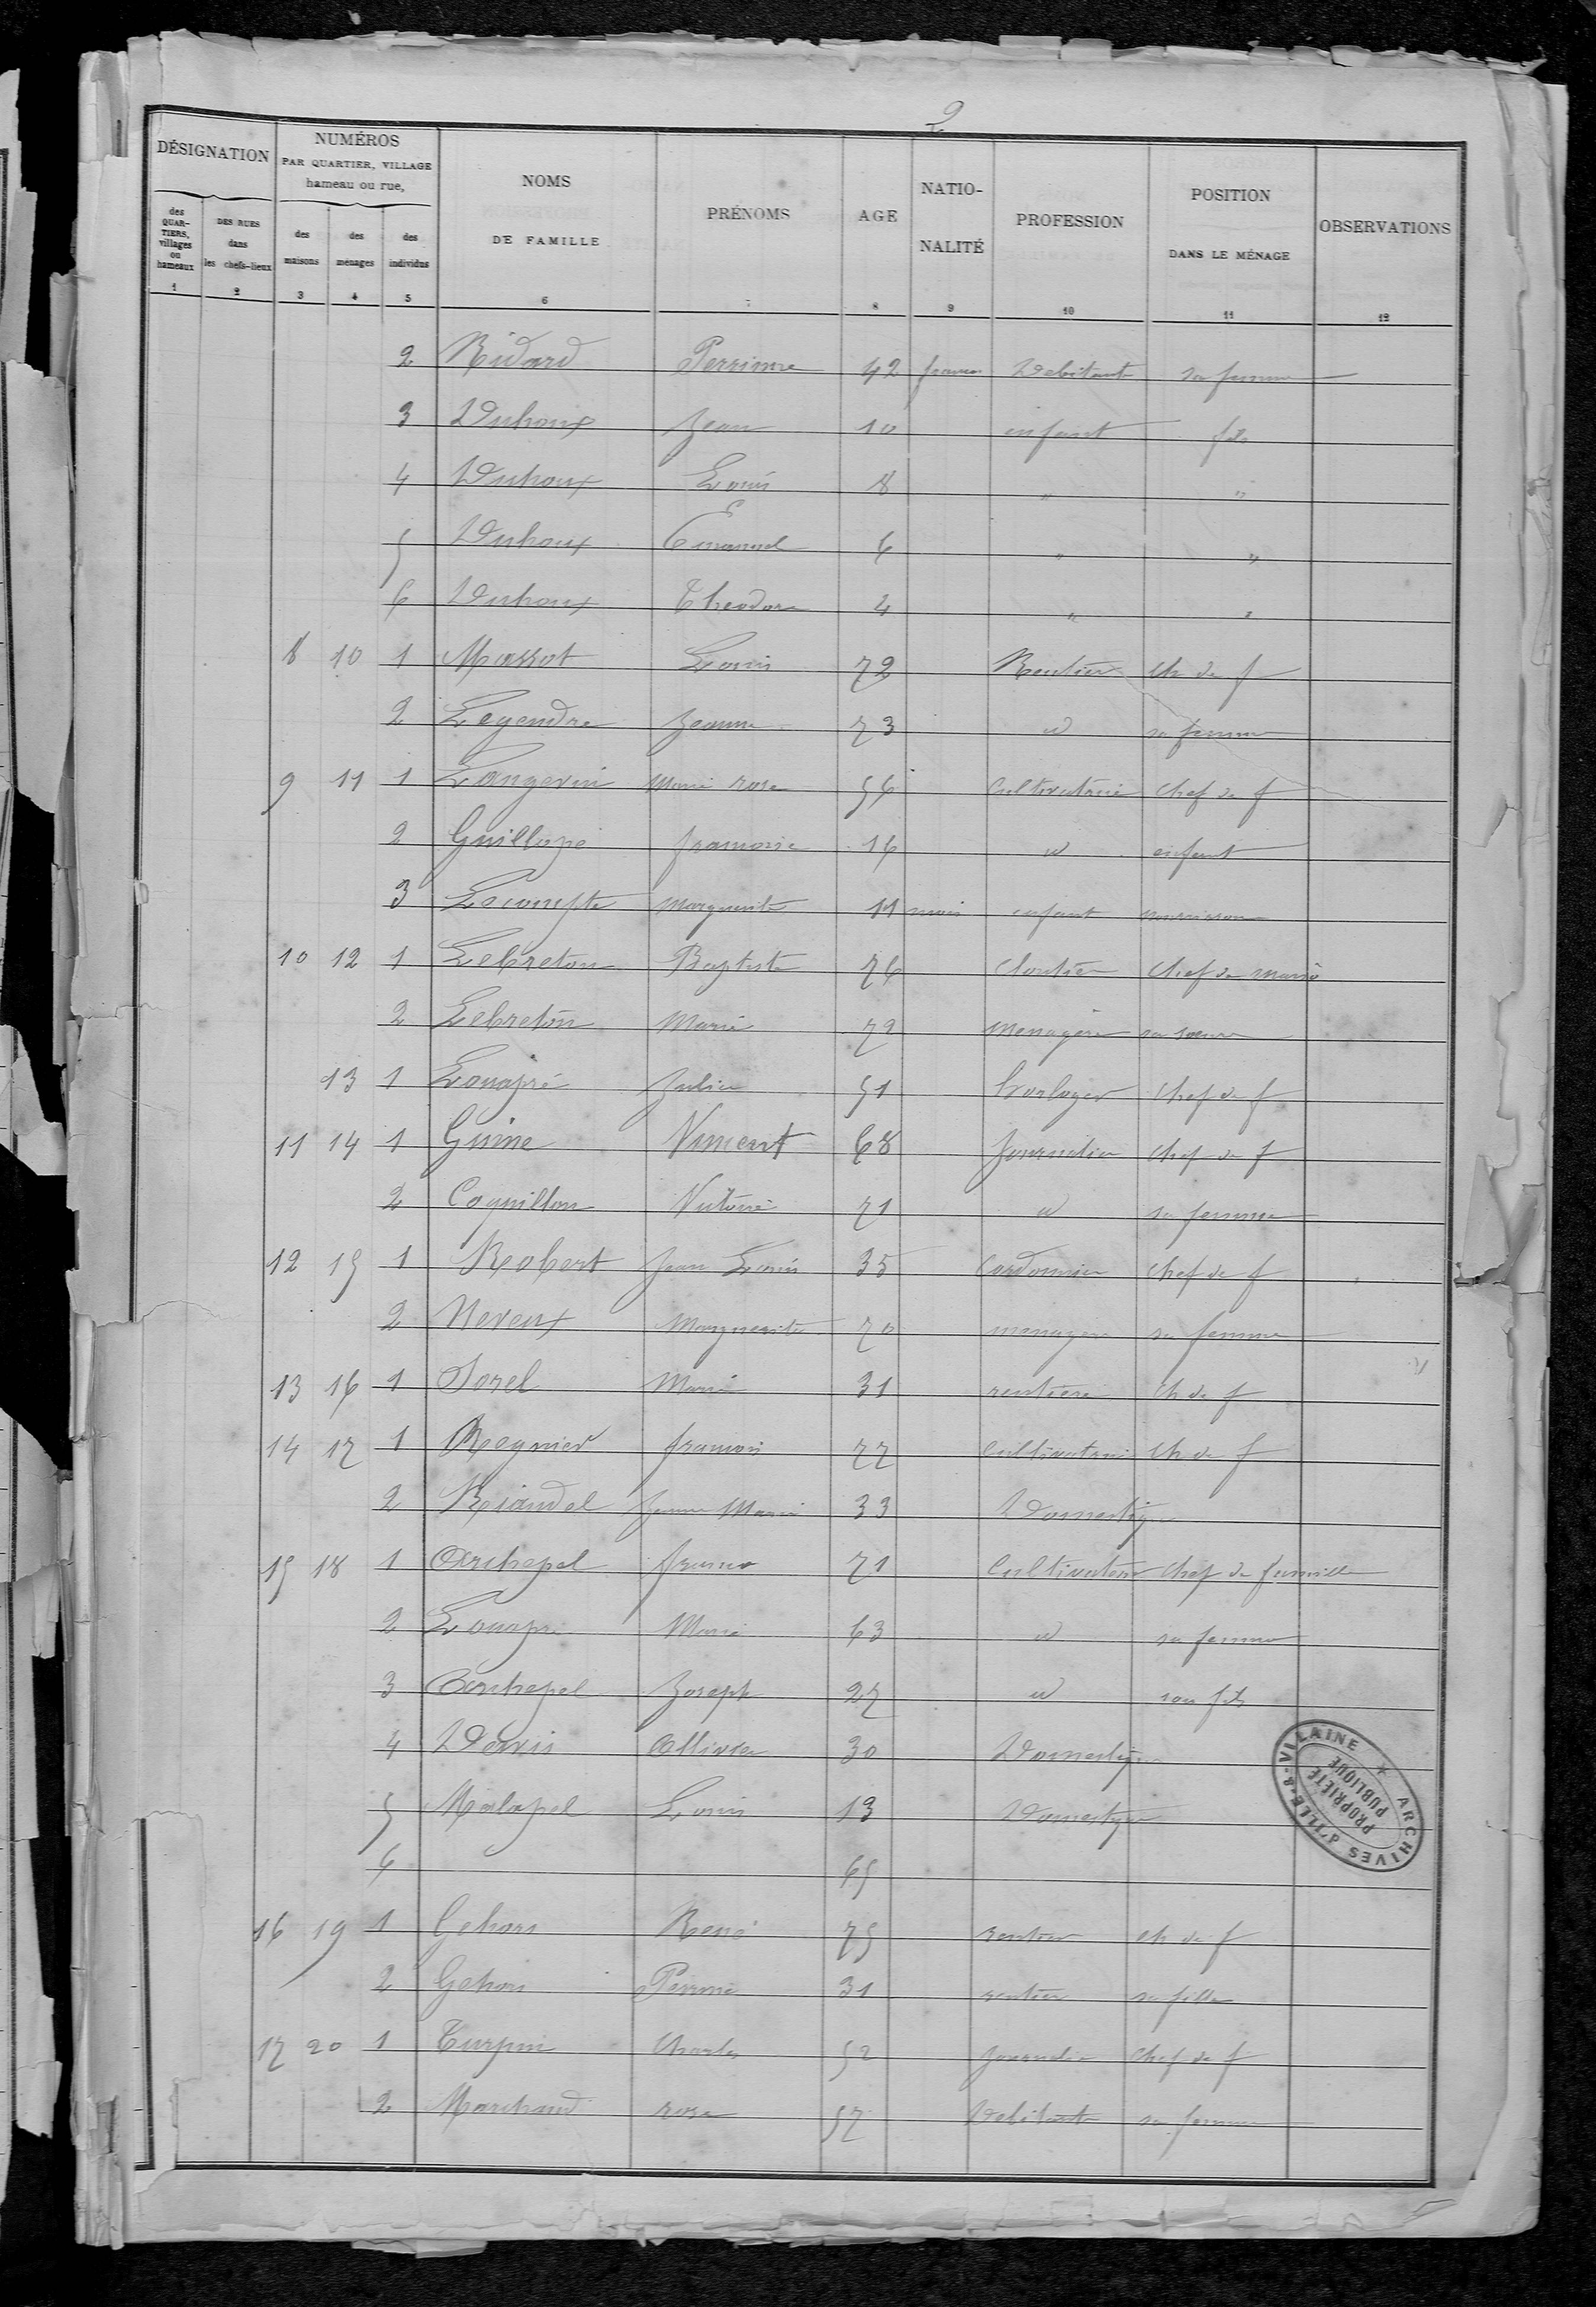 2
DÉSIGNATION NUMÉROS PAR QUARTIER, VILLAGE hameau ou rue, NOMS DE FAMILLE PRÉNOMS AGE NATIO-NALITÉ PROFESSION POSITION DANS LE MÉNAGE OBSERVATIONS
des QUAR-TIERS, villages ou hameaux DES RUES dans les chefs-lieux des maisons des ménages des individus
1 2 3 4 5 6 7 8 9 10 11 12
2 Ridard Perrinne 42 Debitante sa femme
3 Duhoux Jean 10 enfant fils
4 Duhoux Louis 8 " "
5 Duhoux Emanuel 6 " "
6 Duhoux Theodore 4 " "
8 10 1 Massot Louis 72 Rentier ch de f
2 Legendre Jeanne 73 id sa femme
9 11 1 Langevin Marie rose 56 Cultivatrice chef de f
2 Guillopé francoise 16 id enfant
3 Lecompte Marguerite 11 mois enfant nourisson
10 12 1 Lebreton Baptiste 76 cloutier chef de
2 Lebreton Marie 72 menagère sa soeur
13 1 Louapré Julien 51 horloger chef de f
11 14 1 Guine Vincent 68 Journalier chef de f
2 Coquillon Victoire 71 id sa femme
12 15 1 Robert Jean Louis 35 Cordonnier chef de f
2 Neveux Marguerite 70 menagère sa femme
13 16 1 Sorel Marie 31 rentière ch de f
14 17 1 Regnier francois 77 Cultivatrice ch de f
2 Riaudel Jeanne Marie 33 Domestique
15 18 1 Archapel 71 Cultivateur chef de famille
2 Louapre Marie 63 id sa femme
3 Archapel Joseph 27 id son fils
4 Davis Ollivier 30 Domestique
5 Malapel Louis 13 Domestique
6 65
16 19 1 Gehors René 75 rentier ch de f
2 Gehors Perrine 31 rentière sa fille
17 20 1 Turpin Charles 52 Journalier chef de f
2 Marchand rose 57 Debitante sa femme
ARCHIVES d'ILLE-&-VILAINE
PROPRIÉTÉ PUBLIQUE